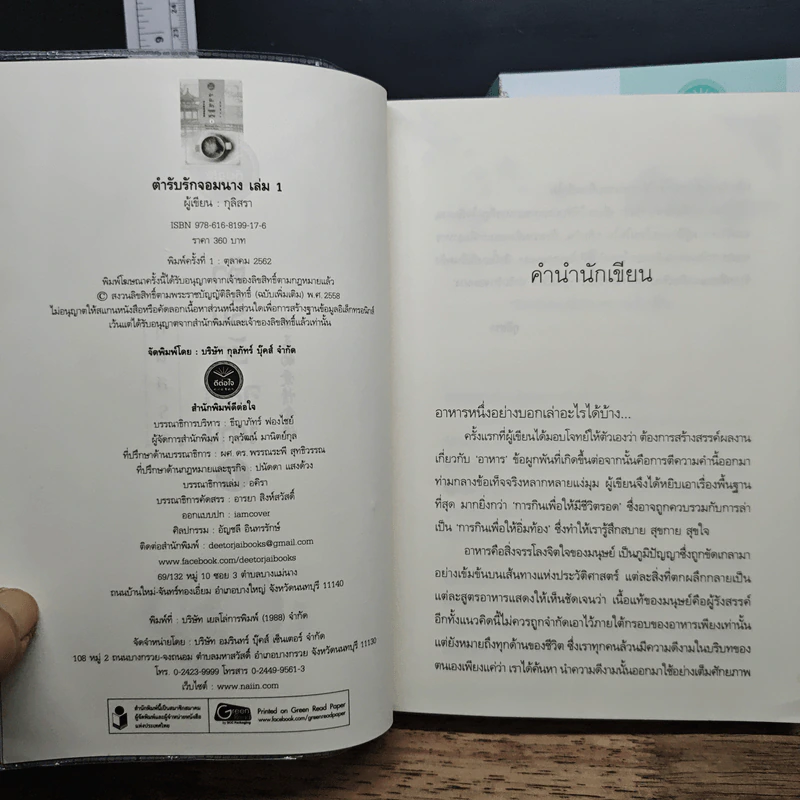 ตำรับรักจอมนาง เล่ม 1
ผู้เขียน : กุลิสรา
ISBN 978-616-8199-17-6
ราคา 360 บาท
พิมพ์ครั้งที่ 1 : ตุลาคม 2562
พิมพ์โฆษณาครั้งนี้ได้รับอนุญาตจากเจ้าของลิขสิทธิ์ตามกฎหมายแล้ว
© สงวนลิขสิทธิ์ตามพระราชบัญญัติลิขสิทธิ์ (ฉบับเพิ่มเติม) พ.ศ. 2558
ไม่อนุญาตให้สแกนหนังสือหรือคัดลอกเนื้อหาส่วนหนึ่งส่วนใดเพื่อการสร้างฐานข้อมูลอิเล็กทรอนิกส์
เว้นแต่ได้รับอนุญาตจากสำนักพิมพ์และเจ้าของลิขสิทธิ์แล้วเท่านั้น
จัดพิมพ์โดย : บริษัท กุลภัทร์ บุ๊คส์ จำกัด
ดีต่อใจ
สำนักพิมพ์ดีต่อใจ
บรรณาธิการบริหาร : ธีญาภัทร์ ฟองไชย์
ผู้จัดการสำนักพิมพ์ : กุลวัฒน์ มานิตย์กุล
ที่ปรึกษาด้านบรรณาธิการ : ผศ.ดร. พรรณระพี สุทธิวรรณ
ที่ปรึกษาด้านกฎหมายและธุรกิจ : ปนัดดา แสงด้วง
บรรณาธิการเล่ม : อคิรา
บรรณาธิการคัดสรร : อารยา สิงห์สวัสดิ์
ออกแบบปก : iamcover
ศิลปกรรม : อัญชลี อินทรรักษ์
ติดต่อสำนักพิมพ์ : deetorjaibooks@gmail.com
www.facebook.com/deetorjaibooks
69/132 หมู่ 10 ซอย 3 ตำบลบางแม่นาง
ถนนบ้านใหม่-จันทร์ทองเอี่ยม อำเภอบางใหญ่ จังหวัดนนทบุรี 11140
พิมพ์ที่ : บริษัท เยลโล่การพิมพ์ (1988) จำกัด
จัดจำหน่ายโดย : บริษัท อมรินทร์ บุ๊คส์ เซ็นเตอร์ จำกัด
108 หมู่ 2 ถนนบางกรวย-จงถนอม ตำบลมหาสวัสดิ์ อำเภอบางกรวย จังหวัดนนทบุรี 11130
โทร. 0-2423-9999 โทรสาร 0-2449-9561-3
เว็บไซต์ : www.naiin.com
สำนักพิมพ์นี้เป็นสมาชิกสมาคม
ผู้จัดพิมพ์และผู้จำหน่ายหนังสือ
แห่งประเทศไทย
Green
Printed on Green Read Paper
www.facebook.com/greenreadpaper
คำนำนักเขียน
อาหารหนึ่งอย่างบอกเล่าอะไรได้บ้าง...
ครั้งแรกที่ผู้เขียนได้มอบโจทย์ให้ตัวเองว่า ต้องการสร้างสรรค์ผลงาน
เกี่ยวกับ ‘อาหาร’ ข้อผูกพันที่เกิดขึ้นต่อจากนั้นคือการตีความคำนี้ออกมา
ท่ามกลางข้อเท็จจริงหลากหลายแง่มุม ผู้เขียนจึงได้หยิบเอาเรื่องพื้นฐาน
ที่สุด มากยิ่งกว่า ‘การกินเพื่อให้มีชีวิตรอด’ ซึ่งอาจถูกควบรวมกับการล่า
เป็น ‘การกินเพื่อให้อิ่มท้อง’ ซึ่งทำให้เรารู้สึกสบาย สุขกาย สุขใจ
อาหารคือสิ่งจรรโลงจิตใจของมนุษย์ เป็นภูมิปัญญาซึ่งถูกขัดเกลามา
อย่างเข้มข้นบนเส้นทางแห่งประวัติศาสตร์ แต่ละสิ่งที่ตกผลึกกลายเป็น
แต่ละสูตรอาหารแสดงให้เห็นชัดเจนว่า เนื้อแท้ของมนุษย์คือผู้รังสรรค์
อีกทั้งแนวคิดนี้ไม่ควรถูกจำกัดเอาไว้ภายใต้กรอบของอาหารเพียงเท่านั้น
แต่ยังหมายถึงทุกด้านของชีวิต ซึ่งเราทุกคนล้วนมีความดีงามในบริบทของ
ตนเองเพียงแค่ว่า เราได้ค้นหา นำความดีงามนั้นออกมาใช้อย่างเต็มศักยภาพ